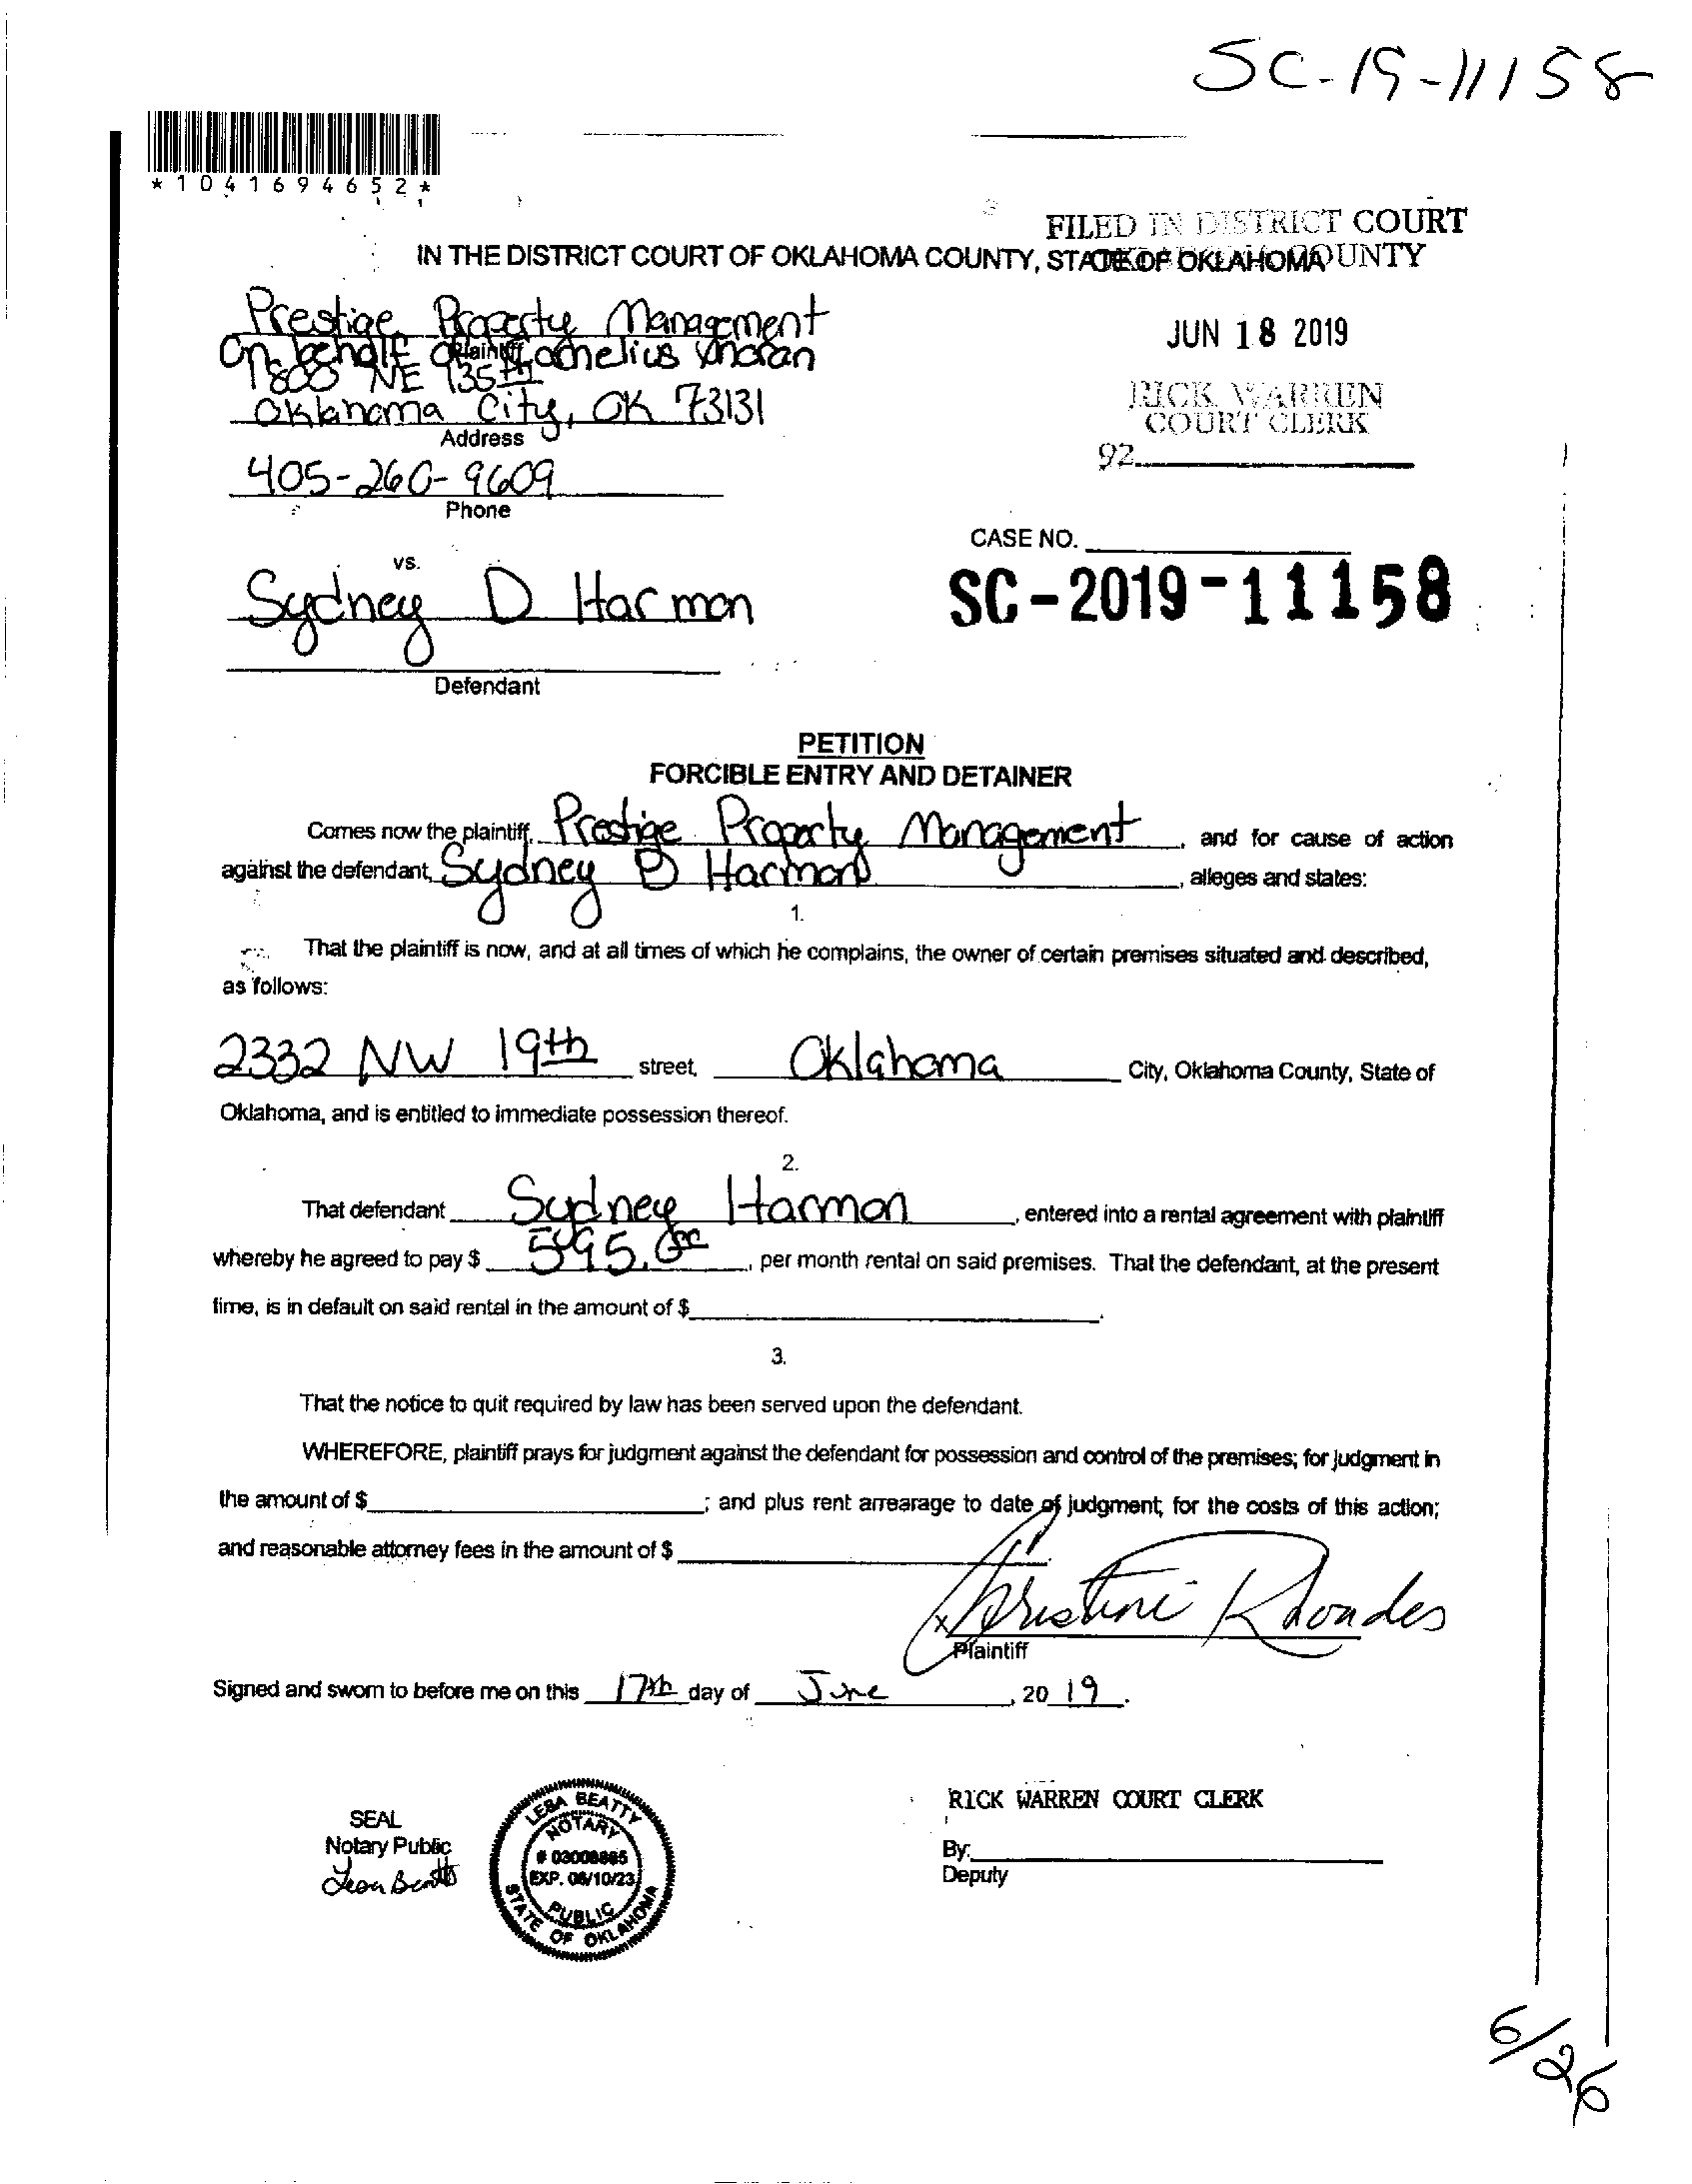 SC-19-11158
*1041694652*
FILED IN DISTRICT COURT
OKLAHOMA COUNTY
IN THE DISTRICT COURT OF OKLAHOMA COUNTY, STATE OF OKLAHOMA
JUN 18 2019
RICK WARREN
COURT CLERK
92
Prestige Property Management
Plaintiff
On behalf of Cornelius
1800 NE 135th
Oklahoma City, OK 73131
Address
405-260-9609
Phone
CASE NO.
SC-2019-11158
vs.
Sydney D Harmon
Defendant
PETITION
FORCIBLE ENTRY AND DETAINER
Comes now the plaintiff, Prestige Property Management, and for cause of action
against the defendant, Sydney D Harmon, alleges and states:
1.
That the plaintiff is now, and at all times of which he complains, the owner of certain premises situated and described,
as follows:
2332 NW 19th street, Oklahoma City, Oklahoma County, State of
Oklahoma, and is entitled to immediate possession thereof.
2.
That defendant Sydney Harmon, entered into a rental agreement with plaintiff
whereby he agreed to pay $ 595.00, per month rental on said premises. That the defendant, at the present
time, is in default on said rental in the amount of $
3.
That the notice to quit required by law has been served upon the defendant.
WHEREFORE, plaintiff prays for judgment against the defendant for possession and control of the premises; for judgment in
the amount of $ ; and plus rent arrearage to date of judgment; for the costs of this action;
and reasonable attorney fees in the amount of $ .
x Christine Rhoades
Plaintiff
Signed and sworn to before me on this 17th day of June, 20 19.
SEAL
Notary Public
Lesa Beatty
LESA BEATTY
NOTARY
# 03008885
EXP. 06/10/23
PUBLIC
STATE OF OKLAHOMA
RICK WARREN COURT CLERK
By:
Deputy
6/26